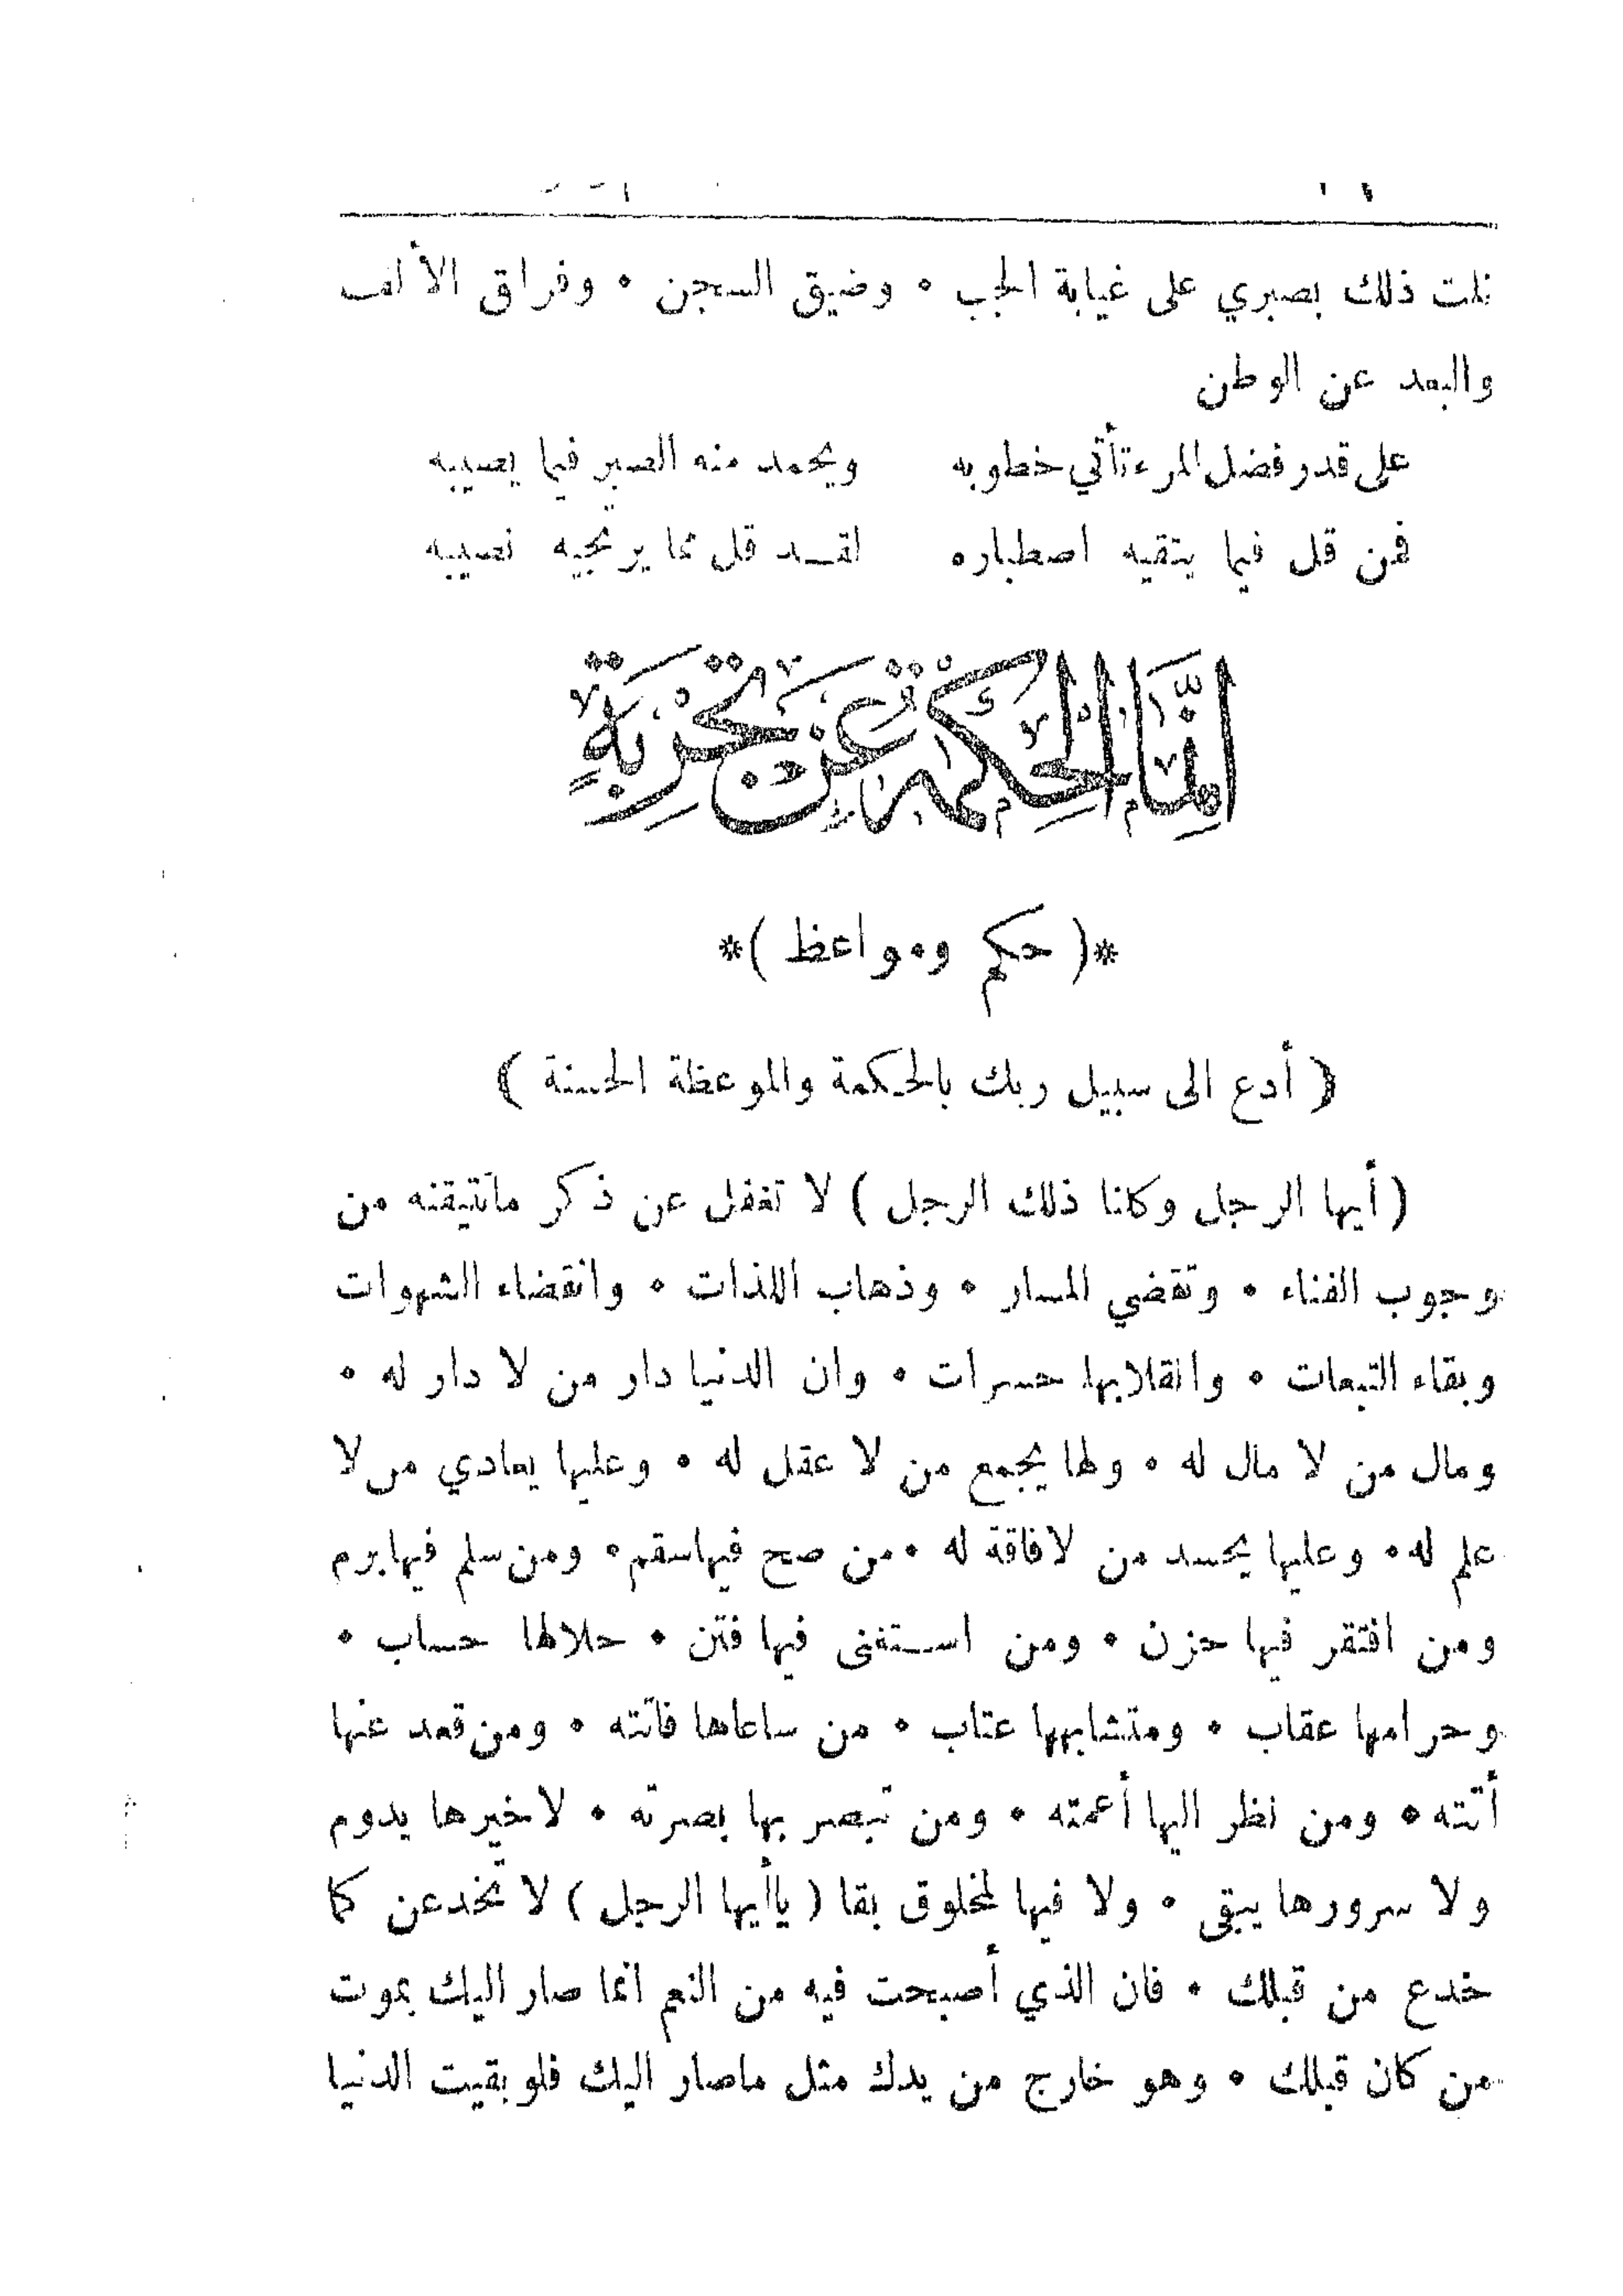 نلت ذلك بصبري على غيابة الجب • وضيق السجن • وفراق الألف
والبعد عن الوطن
على قدر فضل المرء تأتي خطوبه ويحمد منه الصبر فيما يصيبه
فمن قل فيما يتقيه اصطباره لقد قل مما يرتجيه نصيبه
إنما الحكمة عن تجربة
*( حكم ومواعظ )*
( أدع الى سبيل ربك بالحكمة والموعظة الحسنة )
( أيها الرجل وكلنا ذلك الرجل ) لا تغفل عن ذكر ماتتيقنه من
وجوب الفناء • وتقضي المسار • وذهاب اللذات • وانقضاء الشهوات
وبقاء التبعات • وانقلابها حسرات • وان الدنيا دار من لا دار له •
ومال من لا مال له • ولها يجمع من لا عقل له • وعليها يعادي من لا
علم له • وعليها يحسد من لافاقة له • من صح فيها سقم • ومن سلم فيها برم
ومن افتقر فيها حزن • ومن استغنى فيها فتن • حلالها حساب •
وحرامها عقاب • ومتشابهها عتاب • من ساعاها فاتته • ومن قعد عنها
أتته • ومن نظر اليها أعمته • ومن تبصر بها بصرته • لاخيرها يدوم
ولا سرورها يبقى • ولا فيها لمخلوق بقا ( ياأيها الرجل ) لا تخدعن كما
خدع من قبلك • فان الذي أصبحت فيه من النعم انما صار اليك بموت
من كان قبلك • وهو خارج من يدك مثل ماصار اليك فلو بقيت الدنيا